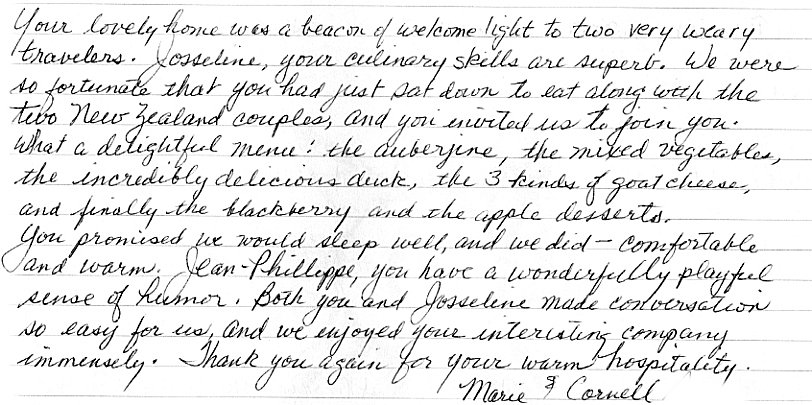 Your lovely home was a beacon of welcome light to two very weary
travelers. Josseline, your culinary skills are superb. We were
so fortunate that you had just sat down to eat along with the
two New Zealand couples, and you invited us to join you.
What a delightful menu: the auberjine, the mixed vegetables,
the incredibly delicious duck, the 3 kinds of goat cheese,
and finally the blackberry and the apple desserts.
You promised we would sleep well, and we did – comfortable
and warm. Jean-Phillippe, you have a wonderfully playful
sense of humor. Both you and Josseline made conversation
so easy for us, and we enjoyed your interesting company
immensely. Thank you again for your warm hospitality.
Marie & Cornell